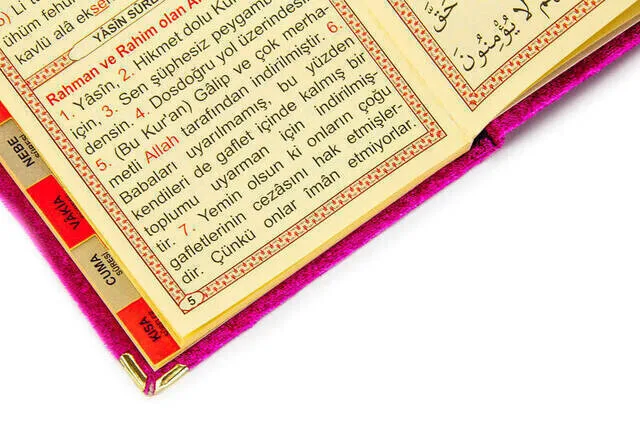 ühüm fehü
kavlü alâ ekse
YÂSÎN SÛR
Rahman ve Rahim olan Al
1. Yâsîn. 2. Hikmet dolu Kur
için, 3. Sen şüphesiz peygamb
densin. 4. Dosdoğru yol üzerindesi
5. (Bu Kur'an) Gâlip ve çok merha-
metli Allah tarafından indirilmiştir. 6.
Babaları uyarılmamış, bu yüzden
kendileri de gaflet içinde kalmış bir
toplumu uyarman için indirilmiş-
tir. 7. Yemin olsun ki onların çoğu
gafletlerinin cezasını hak etmişler-
dir. Çünkü onlar îmân etmiyorlar.
5
حَقَّ
لَا يُؤْمِنُونَ
NEBE
SÛRESİ
VÂKIA
CUMA
SÛRESİ
KISA
SÛRELER